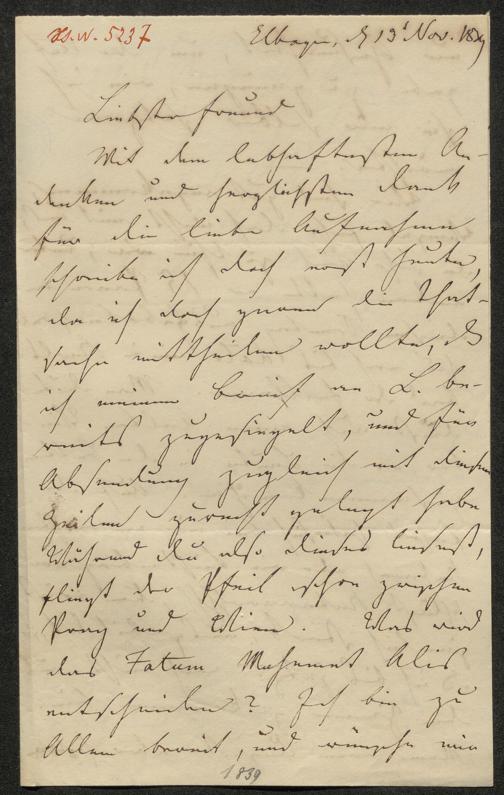 H.W. 5237
Elbogen, d 13t Nov. 1839
Liebster Freund
Mit dem lebhaftesten An-
denken und herzlichsten Dank
für die liebe Aufnahme
schreibe ich doch erst heute,
da ich doch gern die That-
sache mittheilen wollte, dß
ich meinen Brief an L. be-
reits zugesiegelt, und für
Absendung zugleich mit diesen
Zeilen zurecht gelegt habe
Während du also dieses liesest,
fliegt der Pfeil schon zwischen
Prag und Wien. Was wird
das Fatum Mehemet Alis
entscheiden? Ich bin zu
Allem bereit, und wünsche nur
1839